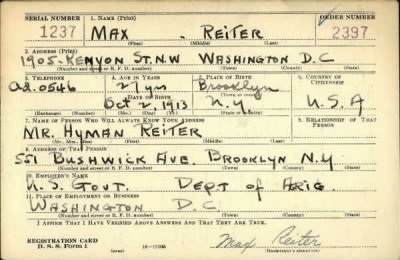 SERIAL NUMBER 1. NAME (Print) ORDER NUMBER
1237 MAX . REITER 2397
(First) (Middle) (Last)
2. ADDRESS (Print)
1905-KENYON ST. N.W WASHINGTON D.C
(Number and street or R. F. D. number) (Town) (County) (State)
3. TELEPHONE 4. AGE IN YEARS 5. PLACE OF BIRTH 6. COUNTRY OF CITIZENSHIP
Ad. 0546 27 yrs Brooklyn
DATE OF BIRTH (Town or county)
Oct 2, 1913 N.Y U.S.A
(Exchange) (Number) (Mo.) (Day) (Yr.) (State or country)
7. NAME OF PERSON WHO WILL ALWAYS KNOW YOUR ADDRESS RELATIONSHIP OF THAT PERSON
MR. HYMAN REITER
(Mr., Mrs., Miss) (First) (Middle) (Last)
9. ADDRESS OF THAT PERSON
551 BUSHWICK AVE. BROOKLYN N.Y
(Number and street or R. F. D. number) (Town) (County) (State)
10. EMPLOYER'S NAME
U.S. GOVT. DEPT of ARIG.
11. PLACE OF EMPLOYMENT OR BUSINESS
WASHINGTON D.C
(Number and street or R. F. D. number) (Town) (County) (State)
I AFFIRM THAT I HAVE VERIFIED ABOVE ANSWERS AND THAT THEY ARE TRUE.
REGISTRATION CARD
D. S. S. Form 1 (over) Max Reiter
(Registrant's signature)